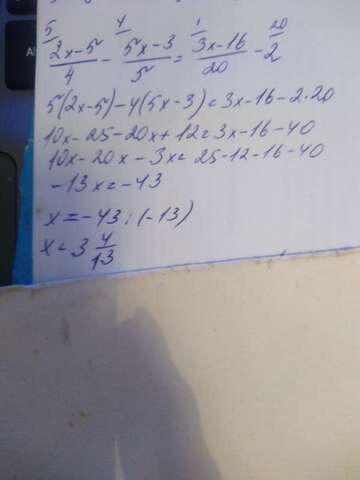 5 4 1 20
(2x-5)/4 - (5x-3)/5 = (3x-16)/20 - 2
5(2x-5)-4(5x-3)=3x-16-2·20
10x-25-20x+12=3x-16-40
10x-20x-3x=25-12-16-40
-13x=-43
x=-43:(-13)
x=3 4/13